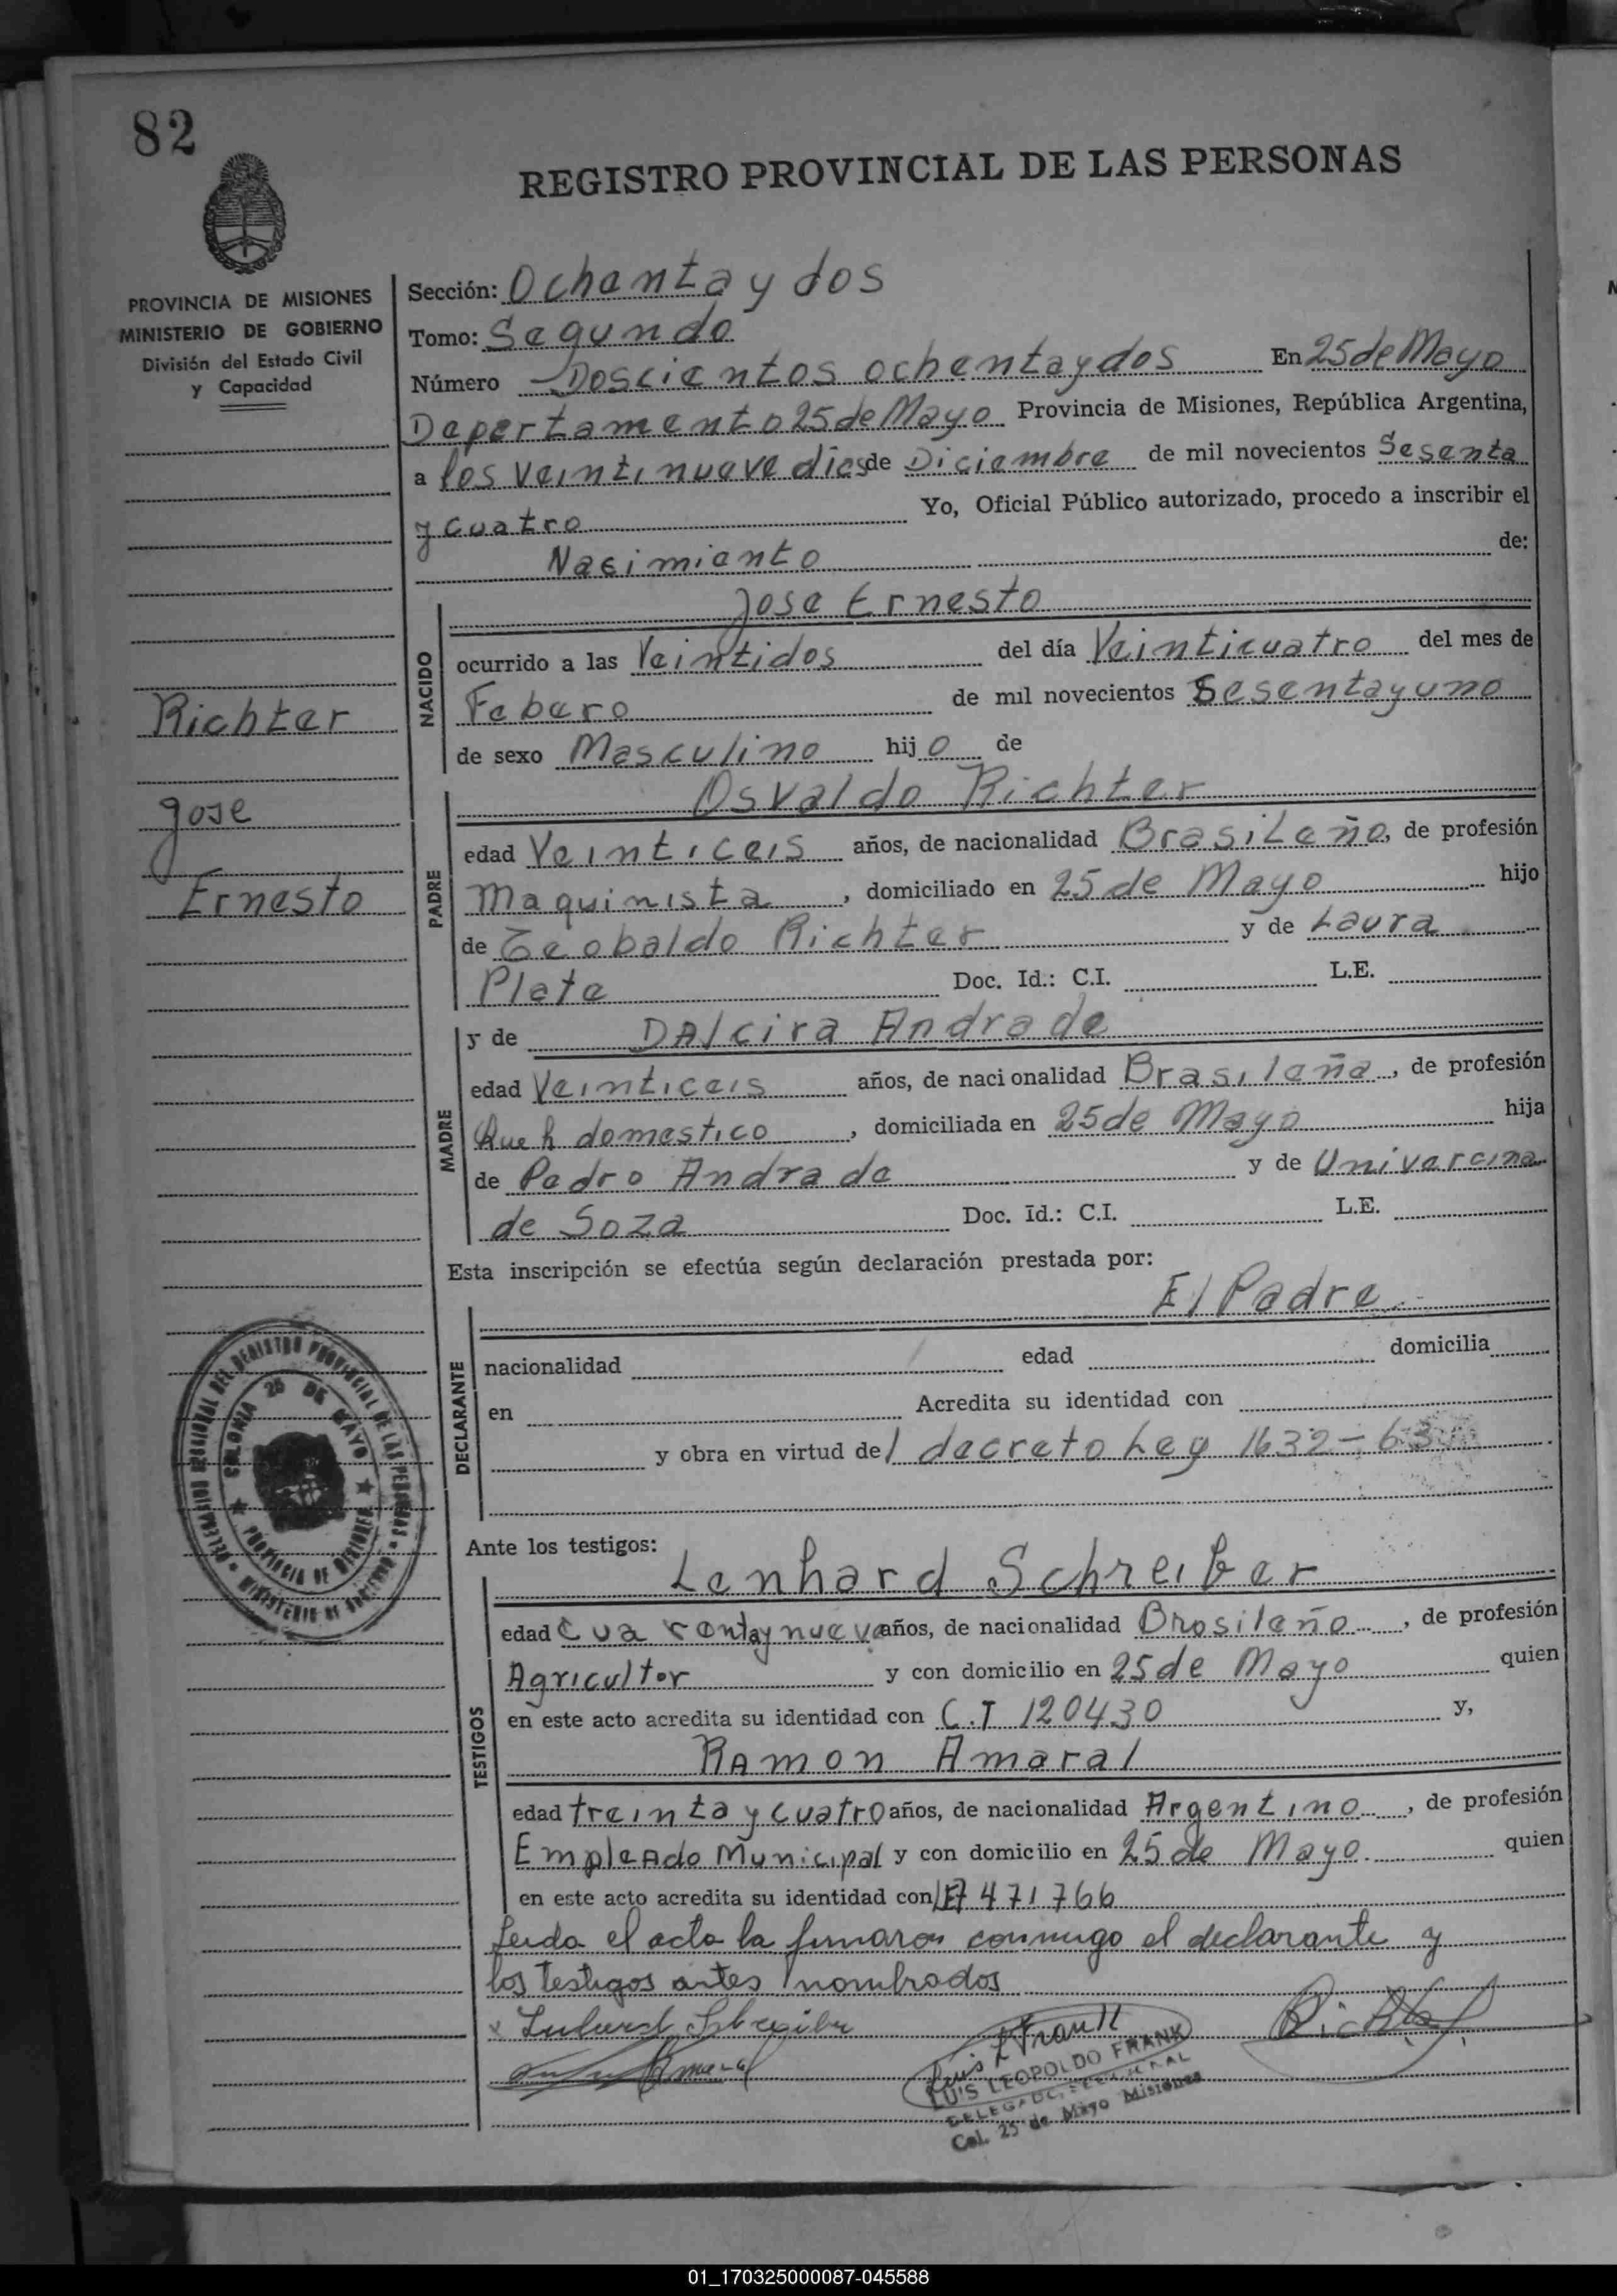 82
REGISTRO PROVINCIAL DE LAS PERSONAS
PROVINCIA DE MISIONES
MINISTERIO DE GOBIERNO
División del Estado Civil
y Capacidad
Richter
Jose
Ernesto
Sección: Ochenta y dos
Tomo: Segundo
Número Doscientos ochenta y dos En 25 de Mayo
Departamento 25 de Mayo Provincia de Misiones, República Argentina,
a los veintinueve dias de Diciembre de mil novecientos Sesenta
y cuatro Yo, Oficial Público autorizado, procedo a inscribir el
Nacimiento de:
NACIDO
Jose Ernesto
ocurrido a las Veintidos del día Veinticuatro del mes de
Febero de mil novecientos Sesenta y uno
de sexo Masculino hijo de
PADRE
Osvaldo Richter
edad Veinticeis años, de nacionalidad Brasileño, de profesión
Maquinista, domiciliado en 25 de Mayo hijo
de Teobaldo Richter y de Laura
Plate Doc. Id.: C.I. L.E.
MADRE
y de DAlcira Andrade
edad Veinticeis años, de nacionalidad Brasileña, de profesión
Queh domestico, domiciliada en 25 de Mayo hija
de Pedro Andrade y de Univercina
de Soza Doc. Id.: C.I. L.E.
Esta inscripción se efectúa según declaración prestada por:
DECLARANTE
El Padre
nacionalidad edad domicilia
en Acredita su identidad con
y obra en virtud del decreto Ley 1632-63
Ante los testigos:
TESTIGOS
Lenhard Schreiber
edad Cuarenta y nueve años, de nacionalidad Brosileño, de profesión
Agricultor y con domicilio en 25 de Mayo quien
en este acto acredita su identidad con C.I 120430 y,
RAmon Amaral
edad treinta y cuatro años, de nacionalidad Argentino, de profesión
EmpleAdo Municipal y con domicilio en 25 de Mayo quien
en este acto acredita su identidad con LE 7471766
Leida el acta la firmaron conmigo el declarante y
los testigos antes nombrados
Richter
Amaral
Luis L Frank
LUIS LEOPOLDO FRANK
DELEGADO SECCIONAL
Col. 25 de Mayo Misiones
DELEGACION SECCIONAL DEL REGISTRO PROVINCIAL DE LAS PERSONAS
MINISTERIO DE GOBIERNO
COLONIA 25 DE MAYO
PROVINCIA DE MISIONES
01_170325000087-045588